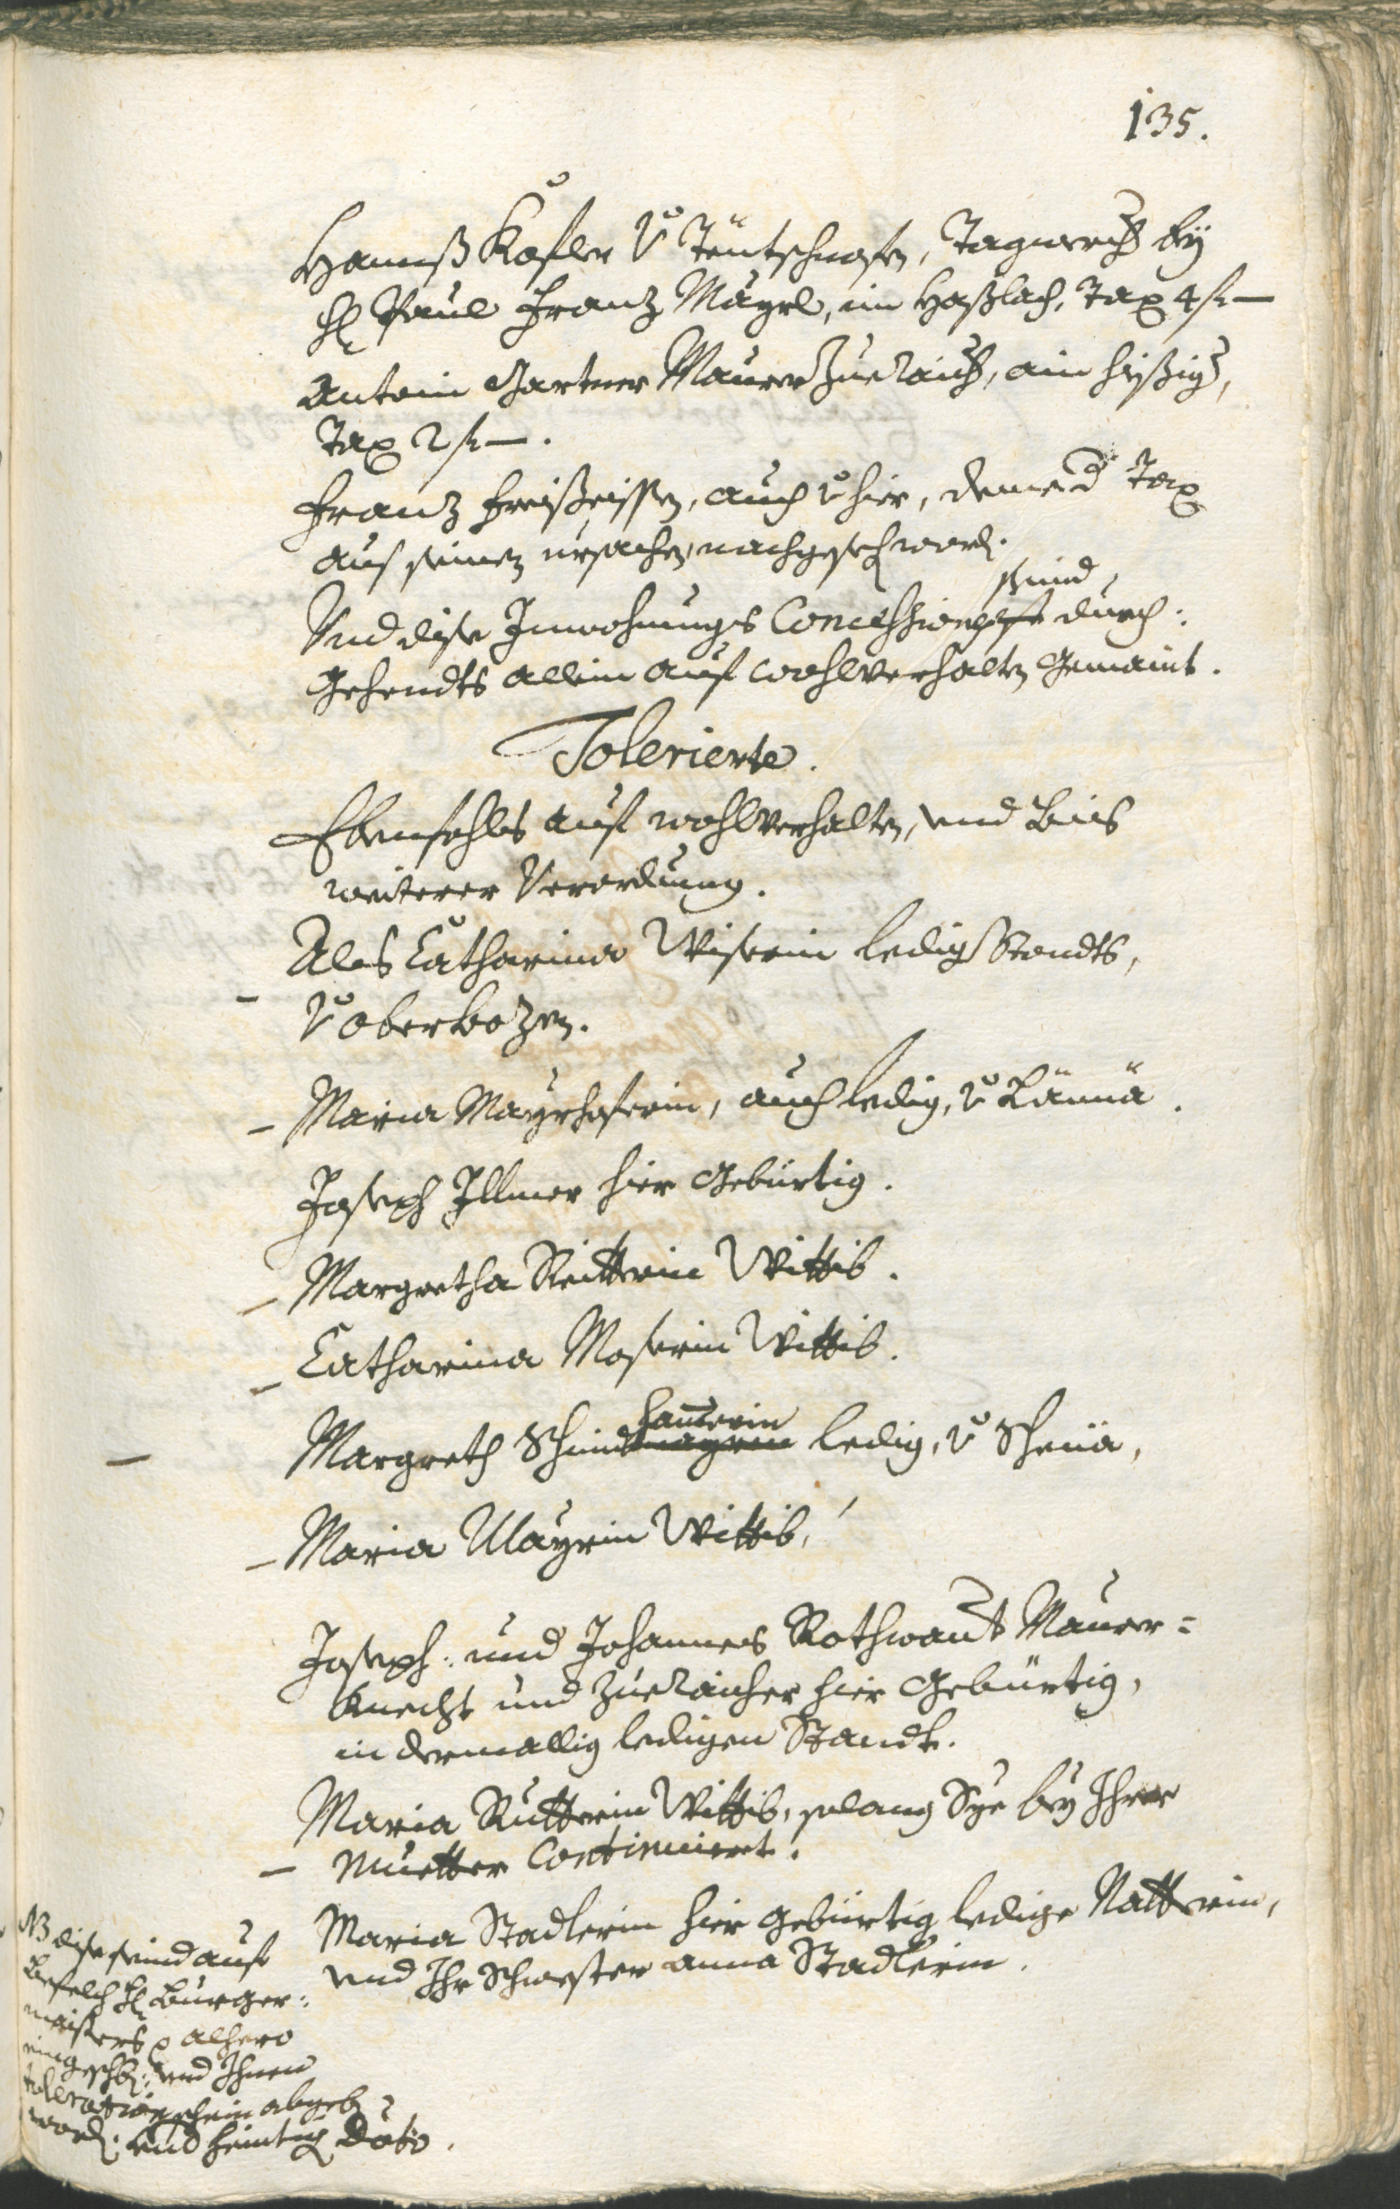 135.
Hannß Kofler v Teutschnofen, Tagwerch. bey
H. Paul Franz Mayrl, im Haßlach, Tax 4 f. —
Antoni Gartner Maurer Zueraich., ain hießig.,
Tax 2 f. — .
Franz Freißeissen, auch v hier, deme d. Tax
aus seinen ursachen, nachgesech. word.
Und dise Inwohnungs Concessionen seind durch:
Gehendts allein auf wohlverhalten Gemaint.
Tolerierte.
Ebenfahls auf wohlverhalten, und biß
weiterer Verordnung.
Als Catharina Wiserin ledig Standts,
v oberbozen.
Maria Mayrhoferin, auch ledig, v Länna.
Joseph Illmer hier Gebürtig.
Margretha Reitterin Wittib.
Catharina Moserin Wittib.
Margreth Schmidhamerin ledig, v Schena,
Maria Mayrin Wittib,
Joseph: und Johannes Rothwandt Maurer=
knecht und Zueraicher hier Gebürtig,
in dermallig ledigen Standt.
Maria Rutterin Wittib, solang Sye bey Ihrer
Muetter Continuiert.
Maria Stadlerin hier gebürtig ledige Natterin,
und Ihr Schwester Anna Stadlerin.
NB dise seind auf
befelch H. Burger:
maisters alhero
eingeschb: und Ihnen
tolerationschein abgeb.
word. und heintig Dato.